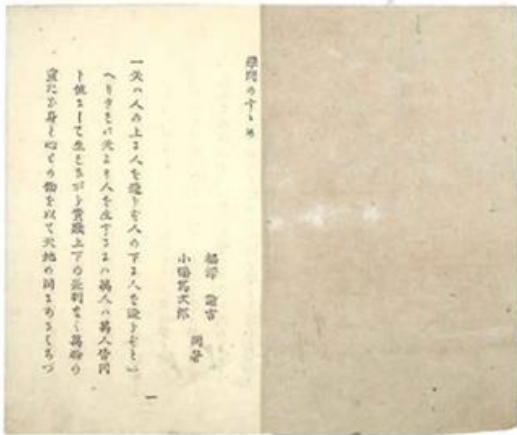 學問のすゝめ
福澤 諭吉
小幡篤次郎 同著
一天ハ人の上に人を造らず人の下に人を造らずとい
へりされバ天より人を生ずるにハ萬人ハ萬人皆同
じ位にして生れながら貴賤上下の差別なく萬物の
靈たる身と心との働を以て天地の間にあるよろづ
一